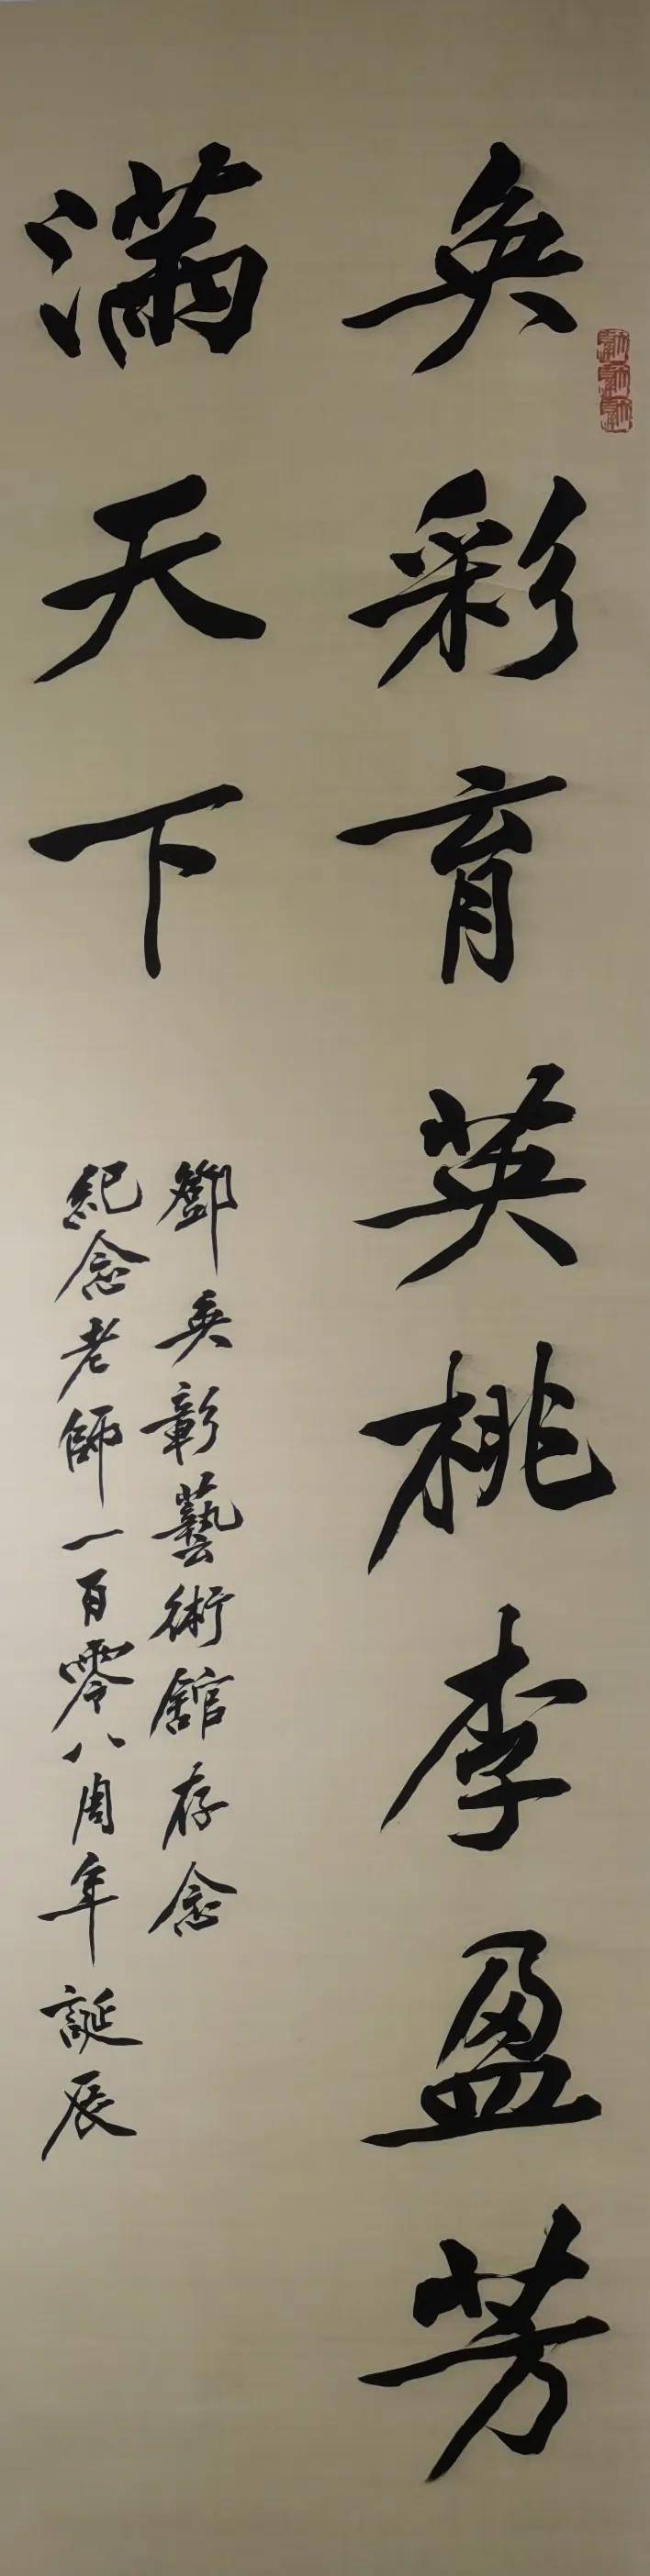 奂彩育英桃李盈芳
满天下
鄧奂彰藝術館存念
紀念老師一百零八周年誕辰